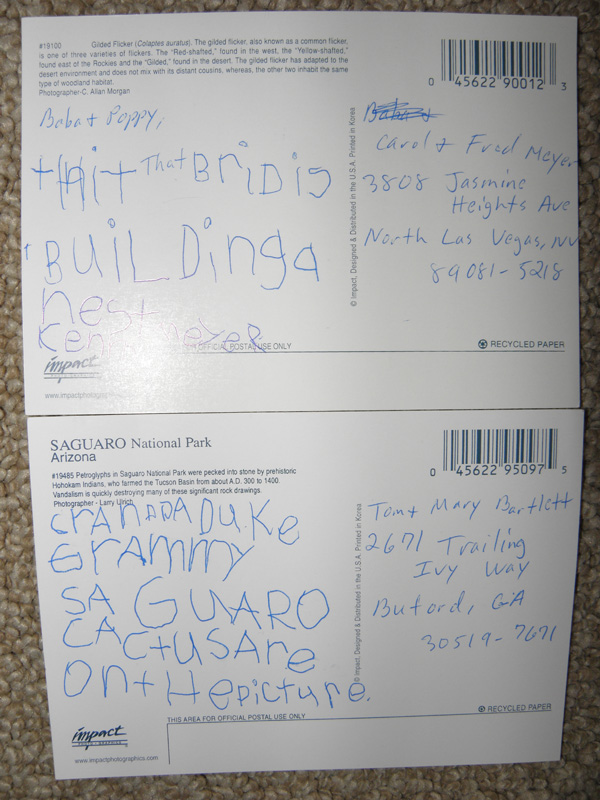 #19100 Gilded Flicker (Colaptes auratus). The gilded flicker, also known as a common flicker,
is one of three varieties of flickers. The "Red-shafted," found in the west, the "Yellow-shafted,"
found east of the Rockies and the "Gilded," found in the desert. The gilded flicker has adapted to the
desert environment and does not mix with its distant cousins, whereas, the other two inhabit the same
type of woodland habitat.
Photographer-C. Allan Morgan
Baba + Poppy,
That BriD iS
BUiLDinga
nest
Ken Meyer
OFFICIAL POSTAL USE ONLY
impact
www.impactphotographics
© Impact, Designed & Distributed in the U.S.A. Printed in Korea
0 45622 90012 3
Baba +
Carol + Fred Meyer
3808 Jasmine
Heights Ave
North Las Vegas, NV
89081-5218
RECYCLED PAPER
SAGUARO National Park
Arizona
#19485 Petroglyphs in Saguaro National Park were pecked into stone by prehistoric
Hohokam Indians, who farmed the Tucson Basin from about A.D. 300 to 1400.
Vandalism is quickly destroying many of these significant rock drawings.
Photographer - Larry Ulrich
GrAnDADUKe
GrAMMy
SA GUARO
CACtUSAre
Ont Hepicture.
impact
PHOTO-GRAPHICS
www.impactphotographics.com
THIS AREA FOR OFFICIAL POSTAL USE ONLY
© Impact, Designed & Distributed in the U.S.A. Printed in Korea
0 45622 95097 5
Tom + Mary Bartlett
2671 Trailing
Ivy Way
Buford, GA
30519-7671
RECYCLED PAPER